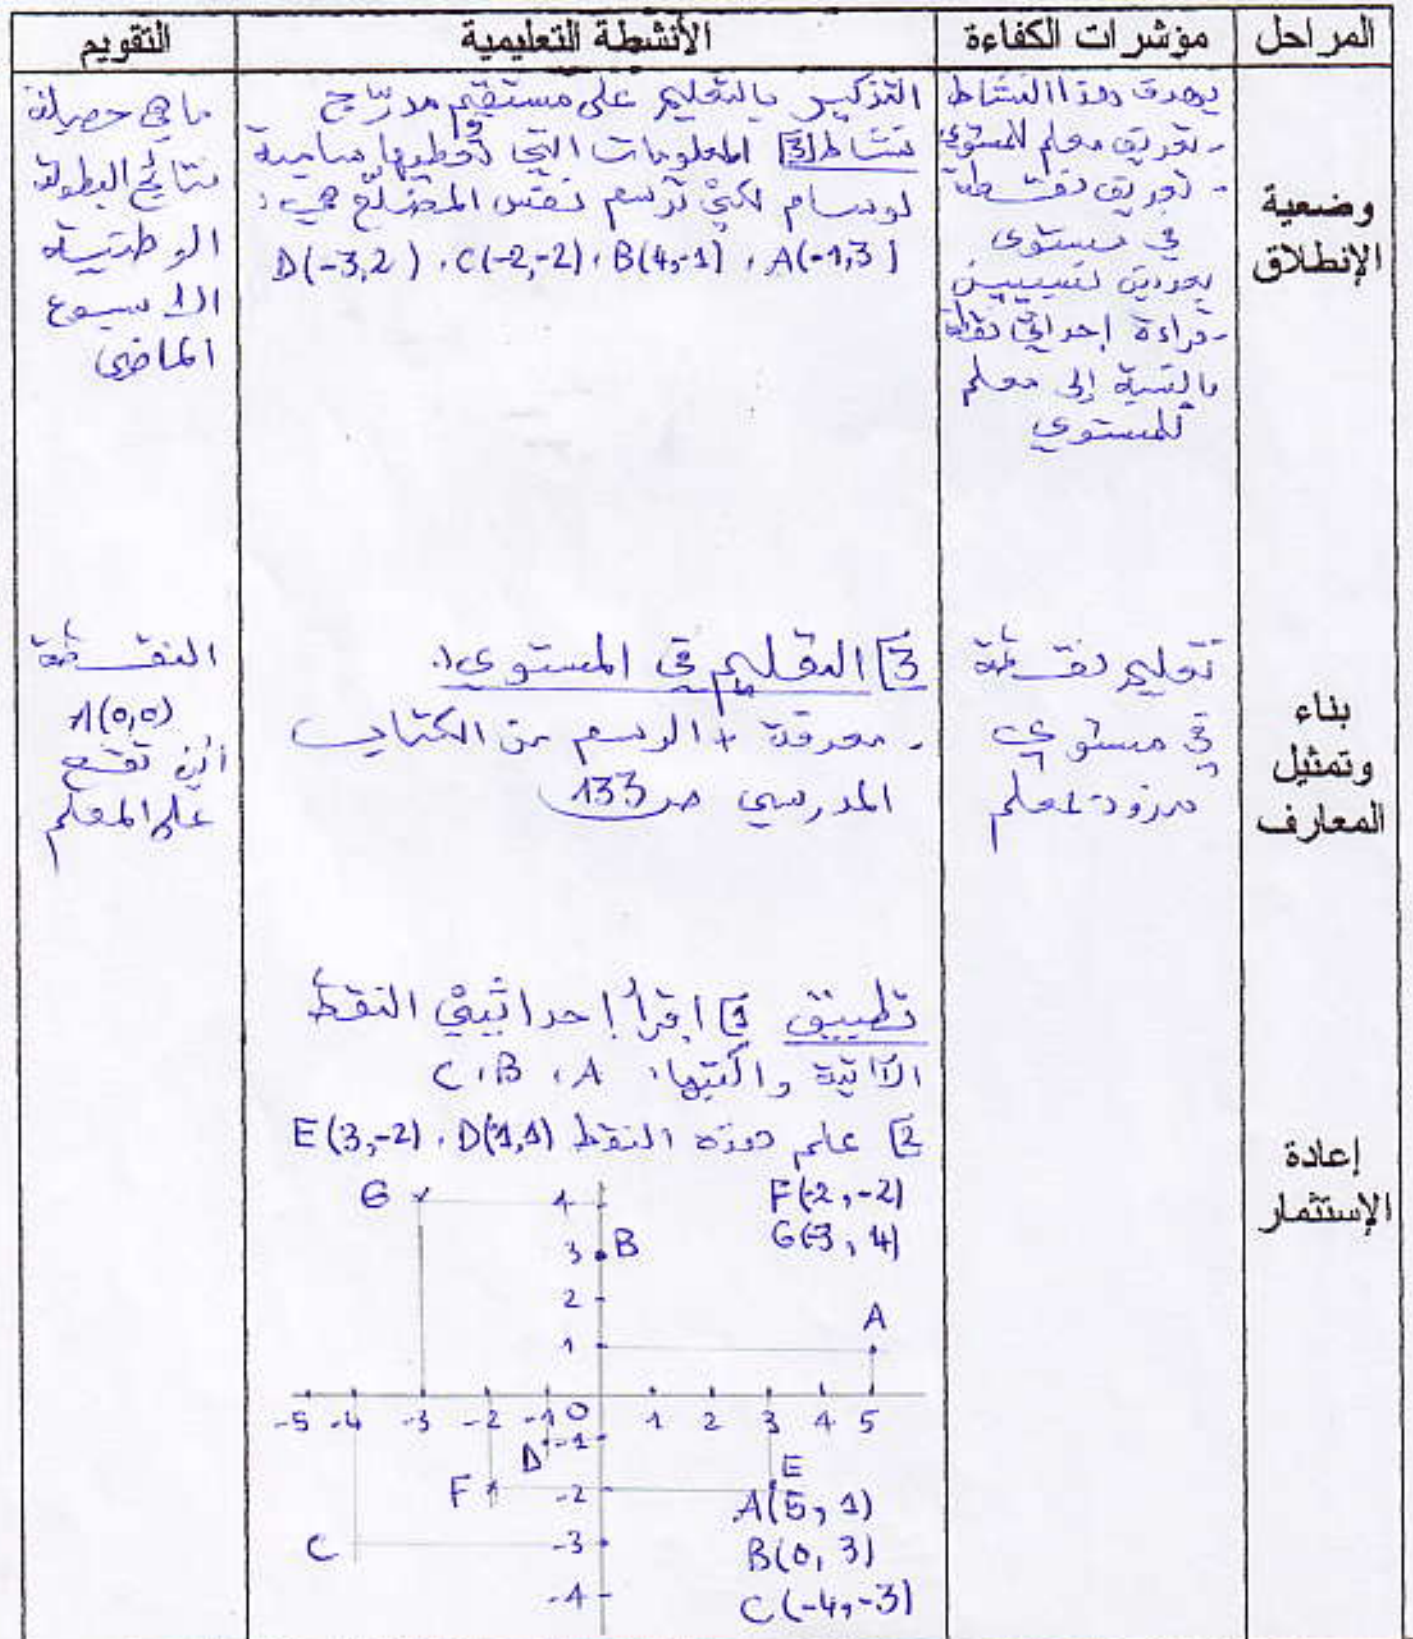 المراحل
مؤشرات الكفاءة
الأنشطة التعليمية
التقويم
وضعية
الإنطلاق
يهدف هذا النشاط
- تعريف معلم للمستوي
- تعريف نقطة
في مستوى
بعددين نسبيين
- قراءة إحداثيي نقطة
بالنسبة إلى معلم
للمستوي
التذكير بالتعليم على مستقيم مدرّج
نشاط 3 المعلومات التي تعطيها سامية
لوسام لكي ترسم نفس المضلّع هي:
D(-3,2) ، C(-2,-2) ، B(4,-1) ، A(-1,3)
ما هي حصيلة
نتائج البطولة
الوطنية
الأسبوع
الماضي
بناء
وتمثيل
المعارف
تعليم نقطة
في مستوي
مزود بمعلم
3] التعليم في المستوي:
- معرفة + الرسم من الكتاب
المدرسي ص 133
النقطة
A(0,0)
أين تقع
على المعلم
إعادة
الإستثمار
تطبيق 1] اقرأ إحداثيي النقط
الآتية واكتبها: A ، B ، C
2] علم هذه النقط D(1,1) ، E(3,-2)
F(-2,-2)
G(-3,4)
G
4
3
B
2
A
1
-5 -4 -3 -2 -1 0 1 2 3 4 5
D
-1
E
F
-2
A(5,1)
C
-3
B(0,3)
-4
C(-4,-3)